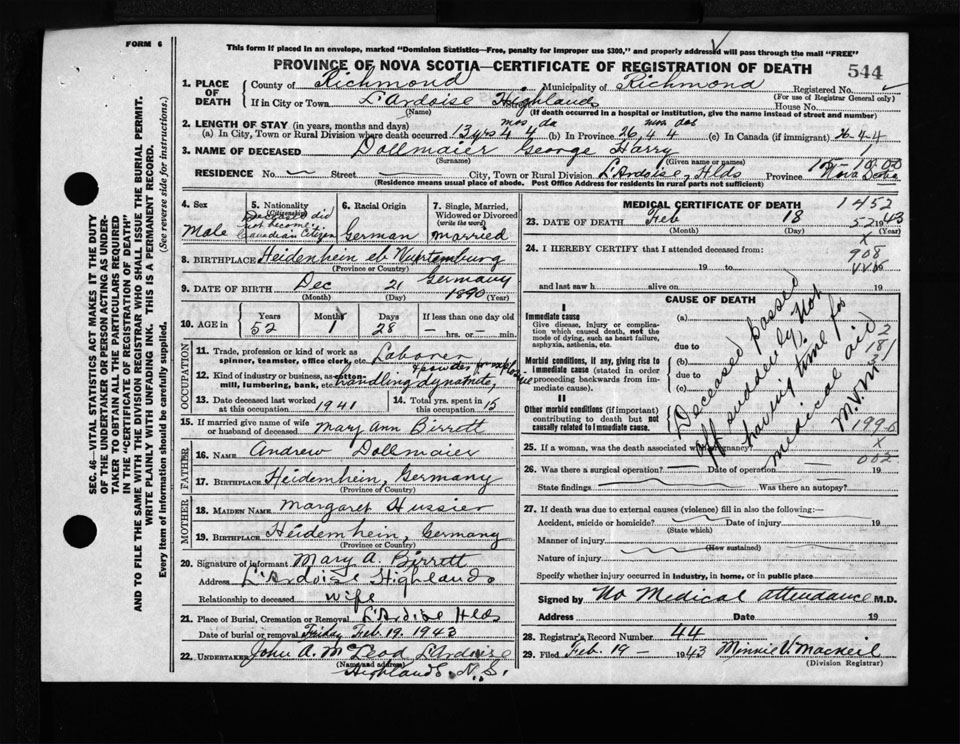 FORM 6
This form if placed in an envelope, marked "Dominion Statistics—Free, penalty for improper use $300," and properly addressed will pass through the mail "FREE"
PROVINCE OF NOVA SCOTIA—CERTIFICATE OF REGISTRATION OF DEATH
544
1. PLACE OF DEATH
County of Richmond Municipality of Richmond Registered No.
(For use of Registrar General only)
If in City or Town L'Ardoise Highlands House No.
(Name) (If death occurred in a hospital or institution, give the name instead of street and number)
2. LENGTH OF STAY (in years, months and days)
(a) In City, Town or Rural Division where death occurred 13 yrs 4 mos 4 da (b) In Province 26 4 4 (c) In Canada (if immigrant) 26-4-4
3. NAME OF DECEASED Dollmaier George Harry
(Surname) (Given name or names)
RESIDENCE No. Street City, Town or Rural Division L'Ardoise, Hlds Province Nova Scotia
(Residence means usual place of abode. Post Office Address for residents in rural parts not sufficient)
4. Sex
Male
5. Nationality (Citizenship)
Deceased did not become Canadian Citizen
6. Racial Origin
German
7. Single, Married, Widowed or Divorced (write the word)
married
8. BIRTHPLACE Heidenhein eb Wurtemburg Germany
(Province or Country)
9. DATE OF BIRTH Dec 21 1890
(Month) (Day) (Year)
10. AGE in
Years 52 Months 1 Days 28 If less than one day — hrs. or — min.
OCCUPATION
11. Trade, profession or kind of work as spinner, teamster, office clerk, etc. Laborer
12. Kind of industry or business, as cotton-mill, lumbering, bank, etc. handling dynamite,
13. Date deceased last worked at this occupation 1941
14. Total yrs. spent in this occupation 15
15. If married give name of wife or husband of deceased Mary Ann Birrett
FATHER
16. NAME Andrew Dollmaier
17. BIRTHPLACE Heidemhein, Germany
(Province or Country)
MOTHER
18. MAIDEN NAME Margaret Hussier
19. BIRTHPLACE Heidemhein, Germany
(Province or Country)
20. Signature of informant Mary A. Birrett
Address L'Ardoise Highlands
Relationship to deceased wife
21. Place of Burial, Cremation or Removal L'Ardoise Hlds
Date of burial or removal Friday Feb. 19, 1943
22. UNDERTAKER John A. McLeod L'Ardoise
(Name and address) Highlands N.S.
MEDICAL CERTIFICATE OF DEATH 1452
23. DATE OF DEATH Feb 18 1943
(Month) (Day) (Year)
24. I HEREBY CERTIFY that I attended deceased from:
908
19 to 19
and last saw h alive on 19
CAUSE OF DEATH
I
Immediate cause
Give disease, injury or complication which caused death, not the mode of dying, such as heart failure, asphyxia, asthenia, etc.
(a)
due to
Morbid conditions, if any, giving rise to immediate cause (stated in order proceeding backwards from immediate cause).
(b)
due to
(c)
II
Other morbid conditions (if important) contributing to death but not causally related to immediate cause.
Deceased passed off suddenly, Not having time for medical aid
M.V.M.
25. If a woman, was the death associated with pregnancy?
002
26. Was there a surgical operation? Date of operation 19
State findings Was there an autopsy?
27. If death was due to external causes (violence) fill in also the following:—
Accident, suicide or homicide? Date of injury 19
(State which)
Manner of injury
(How sustained)
Nature of injury
Specify whether injury occurred in industry, in home, or in public place
Signed by No Medical attendance M.D.
Address Date 19
28. Registrar's Record Number 44
29. Filed Feb. 19 - 1943 Minnie V. MacNeil
(Division Registrar)
SEC. 46—VITAL STATISTICS ACT MAKES IT THE DUTY
OF THE UNDERTAKER OR PERSON ACTING AS UNDER-
TAKER TO OBTAIN ALL THE PARTICULARS REQUIRED
IN THE "CERTIFICATE OF REGISTRATION OF DEATH"
AND TO FILE THE SAME WITH THE DIVISION REGISTRAR WHO SHALL ISSUE THE BURIAL PERMIT.
WRITE PLAINLY WITH UNFADING INK. THIS IS A PERMANENT RECORD.
Every item of information should be carefully supplied. (See reverse side for instructions.)